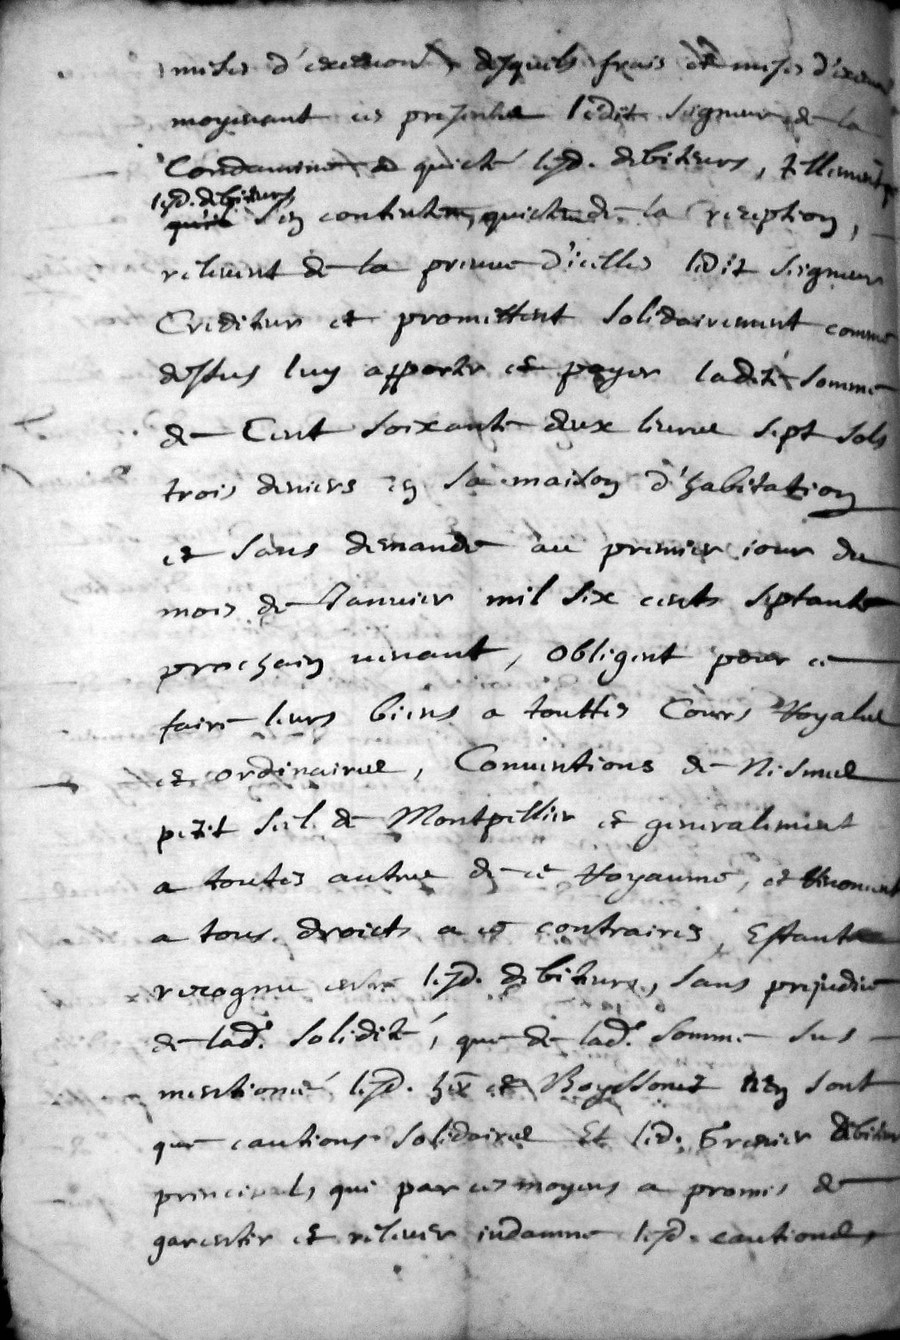 mises d'execution, desquels frais et mises d'execuon
moyenant ces presentes ledit seigneur de la
Condamine a quicté lesd. debiteurs, tellement que
lesd. debiteurs
qu'il s'en contentent, quictent de la reception,
relevent de la preuve d'icelles ledit seigneur
Crediteur et promettent solidairement comme
dessus luy apporter et payer ladite somme
de Cent soixante deux livres sept sols
trois deniers en sa maison d'habitation
et sans demande au premier iour du
mois de Januier mil six cents septante
prochain venant, obligent pour ce
faire leurs biens a touttes Cours Royales
et ordinaires, Conuentions de Nismes
petit seel de Montpellier et generalement
a toutes autres de ce Royaume, et renoncent
a tous droicts a ce contraires, Estant
recogneu entre lesd. debiteurs, sans prejudice
de lad. solidité, que de lad. somme sus
mentionée lesd. et Boyssonet n'en sont
que cautions solidaires Et led. Grenier debiteur
principals qui par ces moyens a promis de
garentir et relever indamne lesd. cautions,